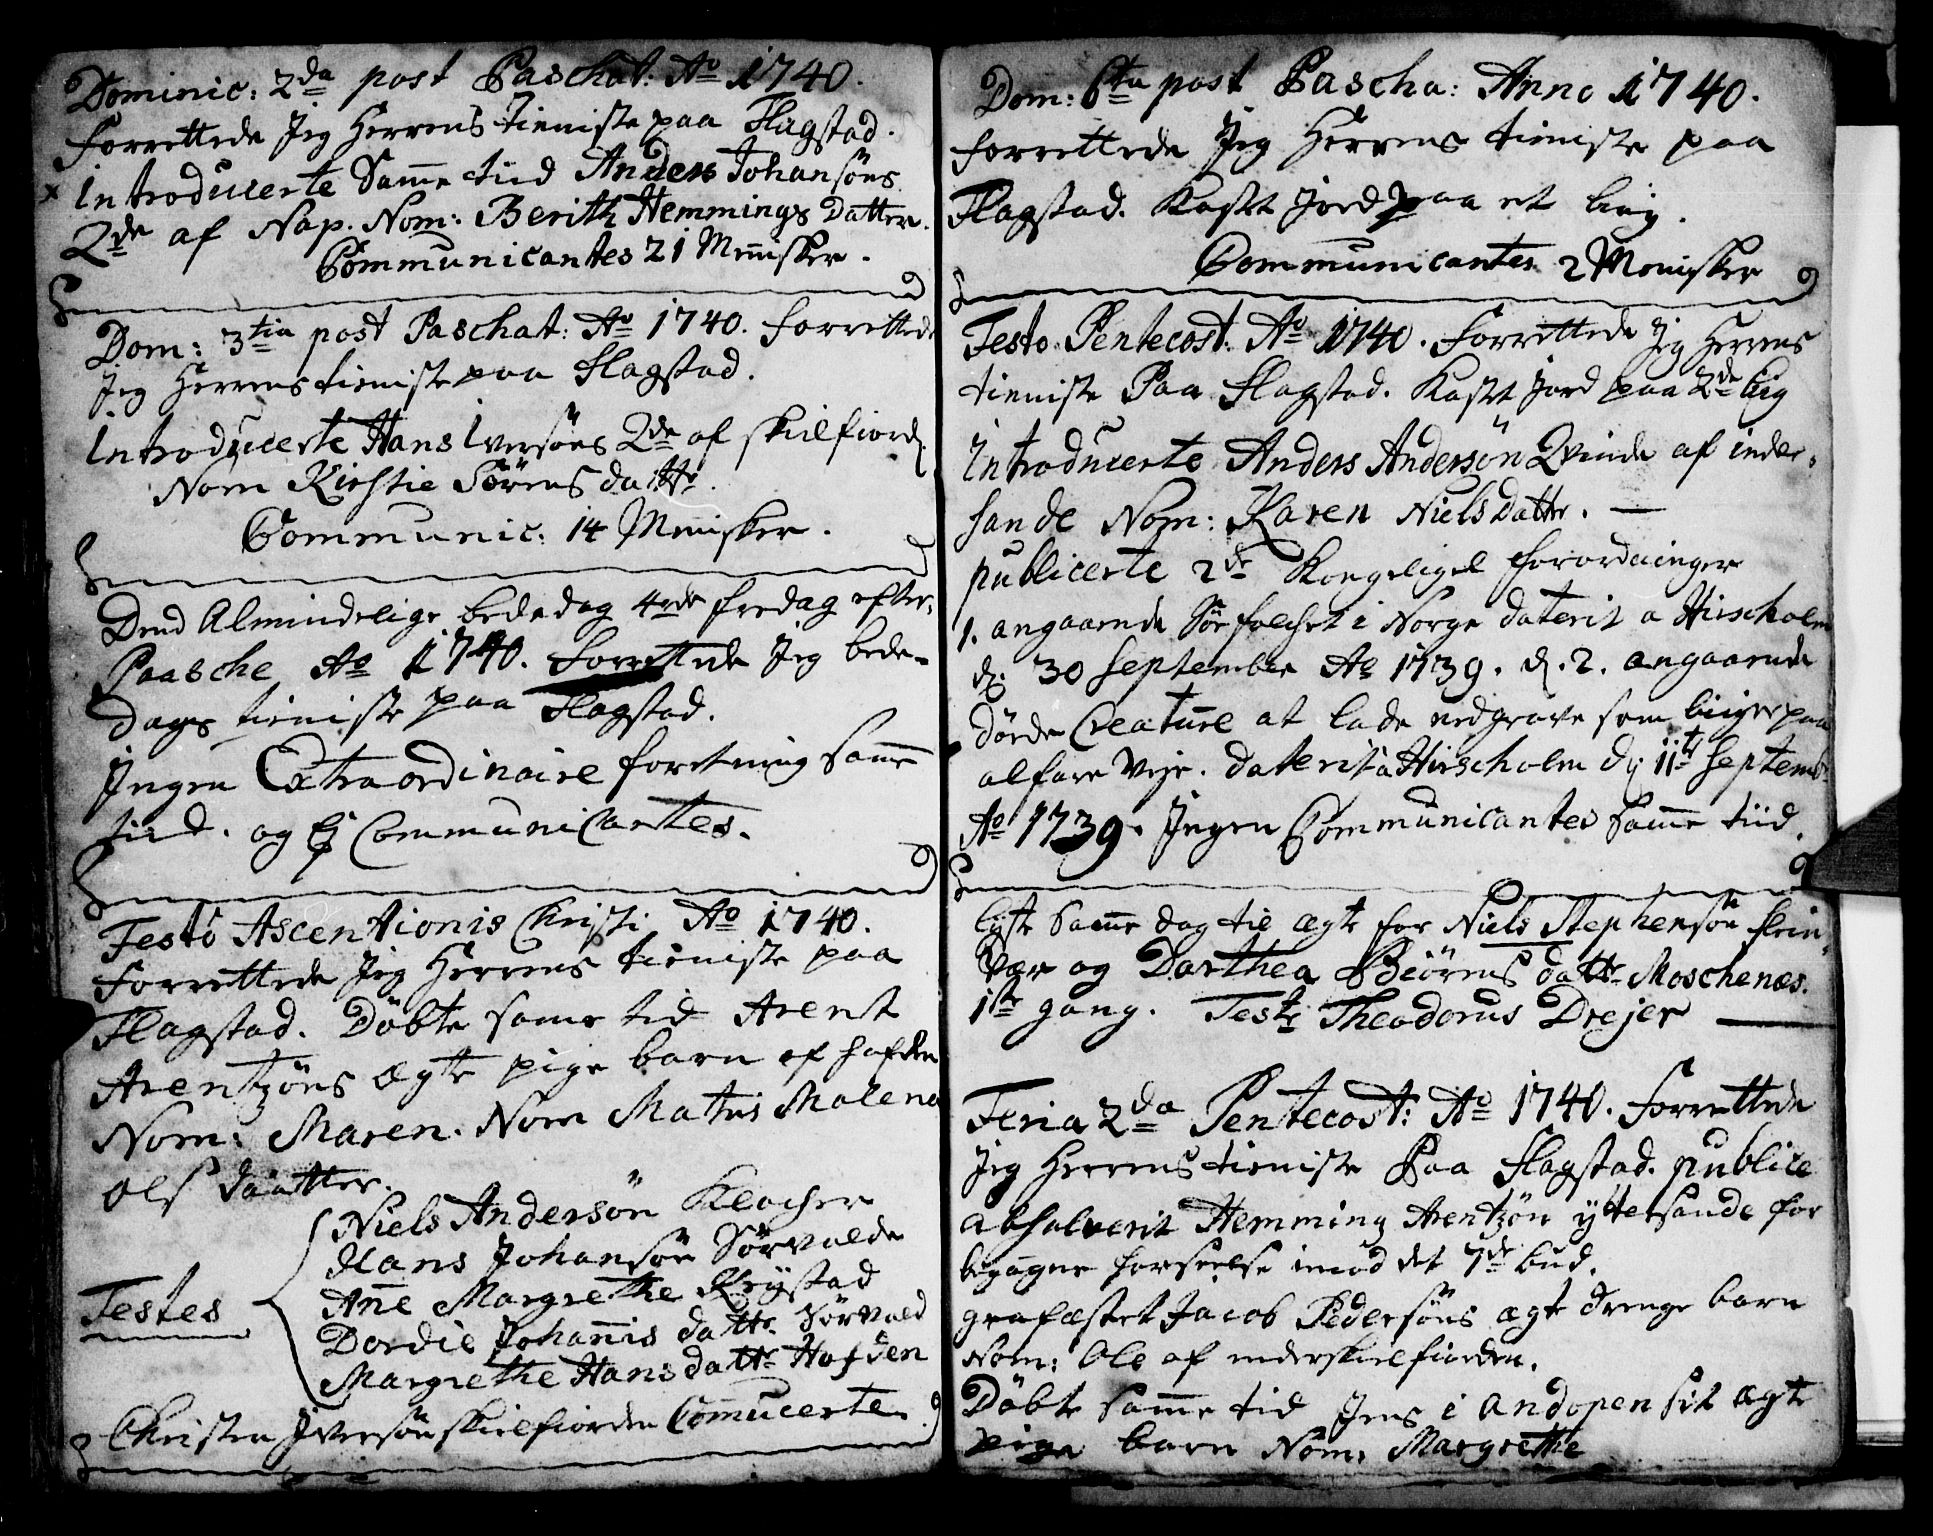 Dominic: 2da post Paschat: Ao 1740.
Forrettede Jeg Herrens tieniste paa Flagstad.
x Introducerte Samme tiid Anders Johansöns
2de af Nap. Nom: Berith Hemmings Datter.
Communicantes 21 Mennisker.
Dom: 3tia post Paschat: Ao 1740. forrettede
Jeg Herrens tieniste paa Flagstad.
Introducerte Hans Iversöns 2de af skielfiord.
Nom Kirstie Sörens datter.
Communic: 14 Mennisker.
Dend Almindelige bededag 4rde fredag efter
Paasche Ao 1740. Forrettede Jeg bede-
dags tieniste paa Flagstad.
Ingen Extraordinaire forretning samme
tiid. og Ej Communicantes.
Festo Ascentionis Christi Ao 1740.
Forrettede Jeg Herrens tieniste paa
Flagstad. Döbte samme tid Arent
Arentzöns ægte pige barn af hafden
Nom: Maren. Nom Matris Malena
Ols daatter.
Niels Andersön Klocker
Hans Johansön Sörvalde
Testes Anne Margrethe Reystad
Dordie Johannis dattr. Sörvald
Margrethe Hans dattr Hafden
Christen Iversön skielfiorden Comucerte.
Dom: 6ta post Pascha: Anno 1740.
forrettede Jeg Herrens tieniste paa
Flagstad. Kastt Jord paa et liig.
Communicantes 2 Menisker
Festo Pentecost: Ao 1740. Forrettede Jeg Herrens
tieniste Paa Flagstad. Kastt Jord paa 2de liig
Introducerte Anders Andersön Qvinde af inder-
sande Nom: Karen Niels Dattr.
publicerte 2de Kongeligel forordninger
1. angaaende Söefolchet i Norge daterit a Hirscholm
d. 30 September Ao 1739. d. 2. angaaende
döde Creature at lade nedgrave som ligger paa
alfare Veje. daterit a Hirscholm d. 11t Septemb
Ao 1739. Ingen Communicantes samme tiid.
lyste samme dag til ægte for Niels Stephensön
Vær og Darthea Biörens dattr Moschenæs.
1ste gang. Teste Theodorus Drejer
Feria 2da Pentecost: Ao 1740. Forrettede
Jeg Herrens tieniste Paa Flagstad. publice
absolverit Hemming Arentzön yttersande for
begagne forseelse imod det 7de bud.
grafæstet Jacob Pedersöns ægte drenge barn
Nom: Ole af inderskielfiorden.
Döbte samme tid Jens i Andopen sit ægte
pige barn Nom: Margrethe